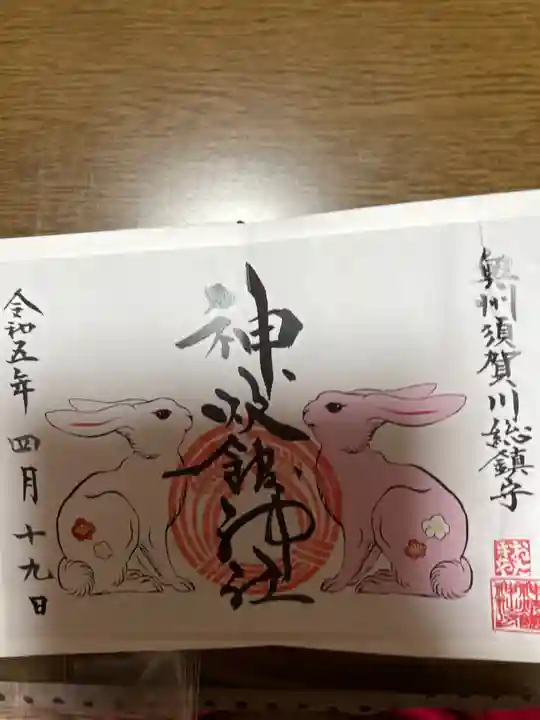 奥州須賀川総鎮守
神炊館神社
令和五年 四月十九日